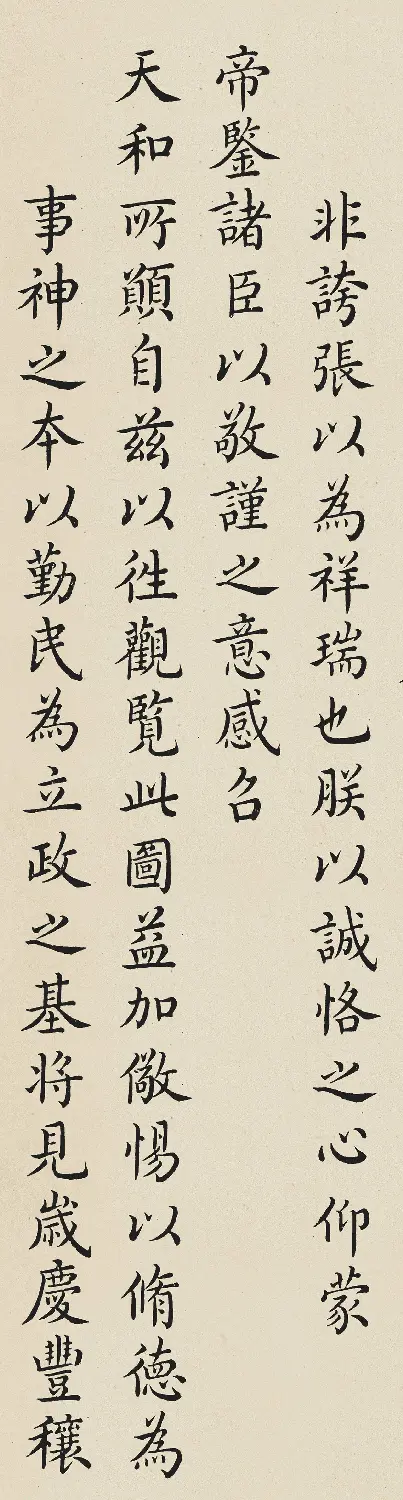 非誇張以為祥瑞也朕以誠恪之心仰蒙
帝鑒諸臣以敬謹之意感召
天和所願自兹以徃觀覽此圖益加儆惕以脩德為
事神之本以勤民為立政之基將見歲慶豐穰